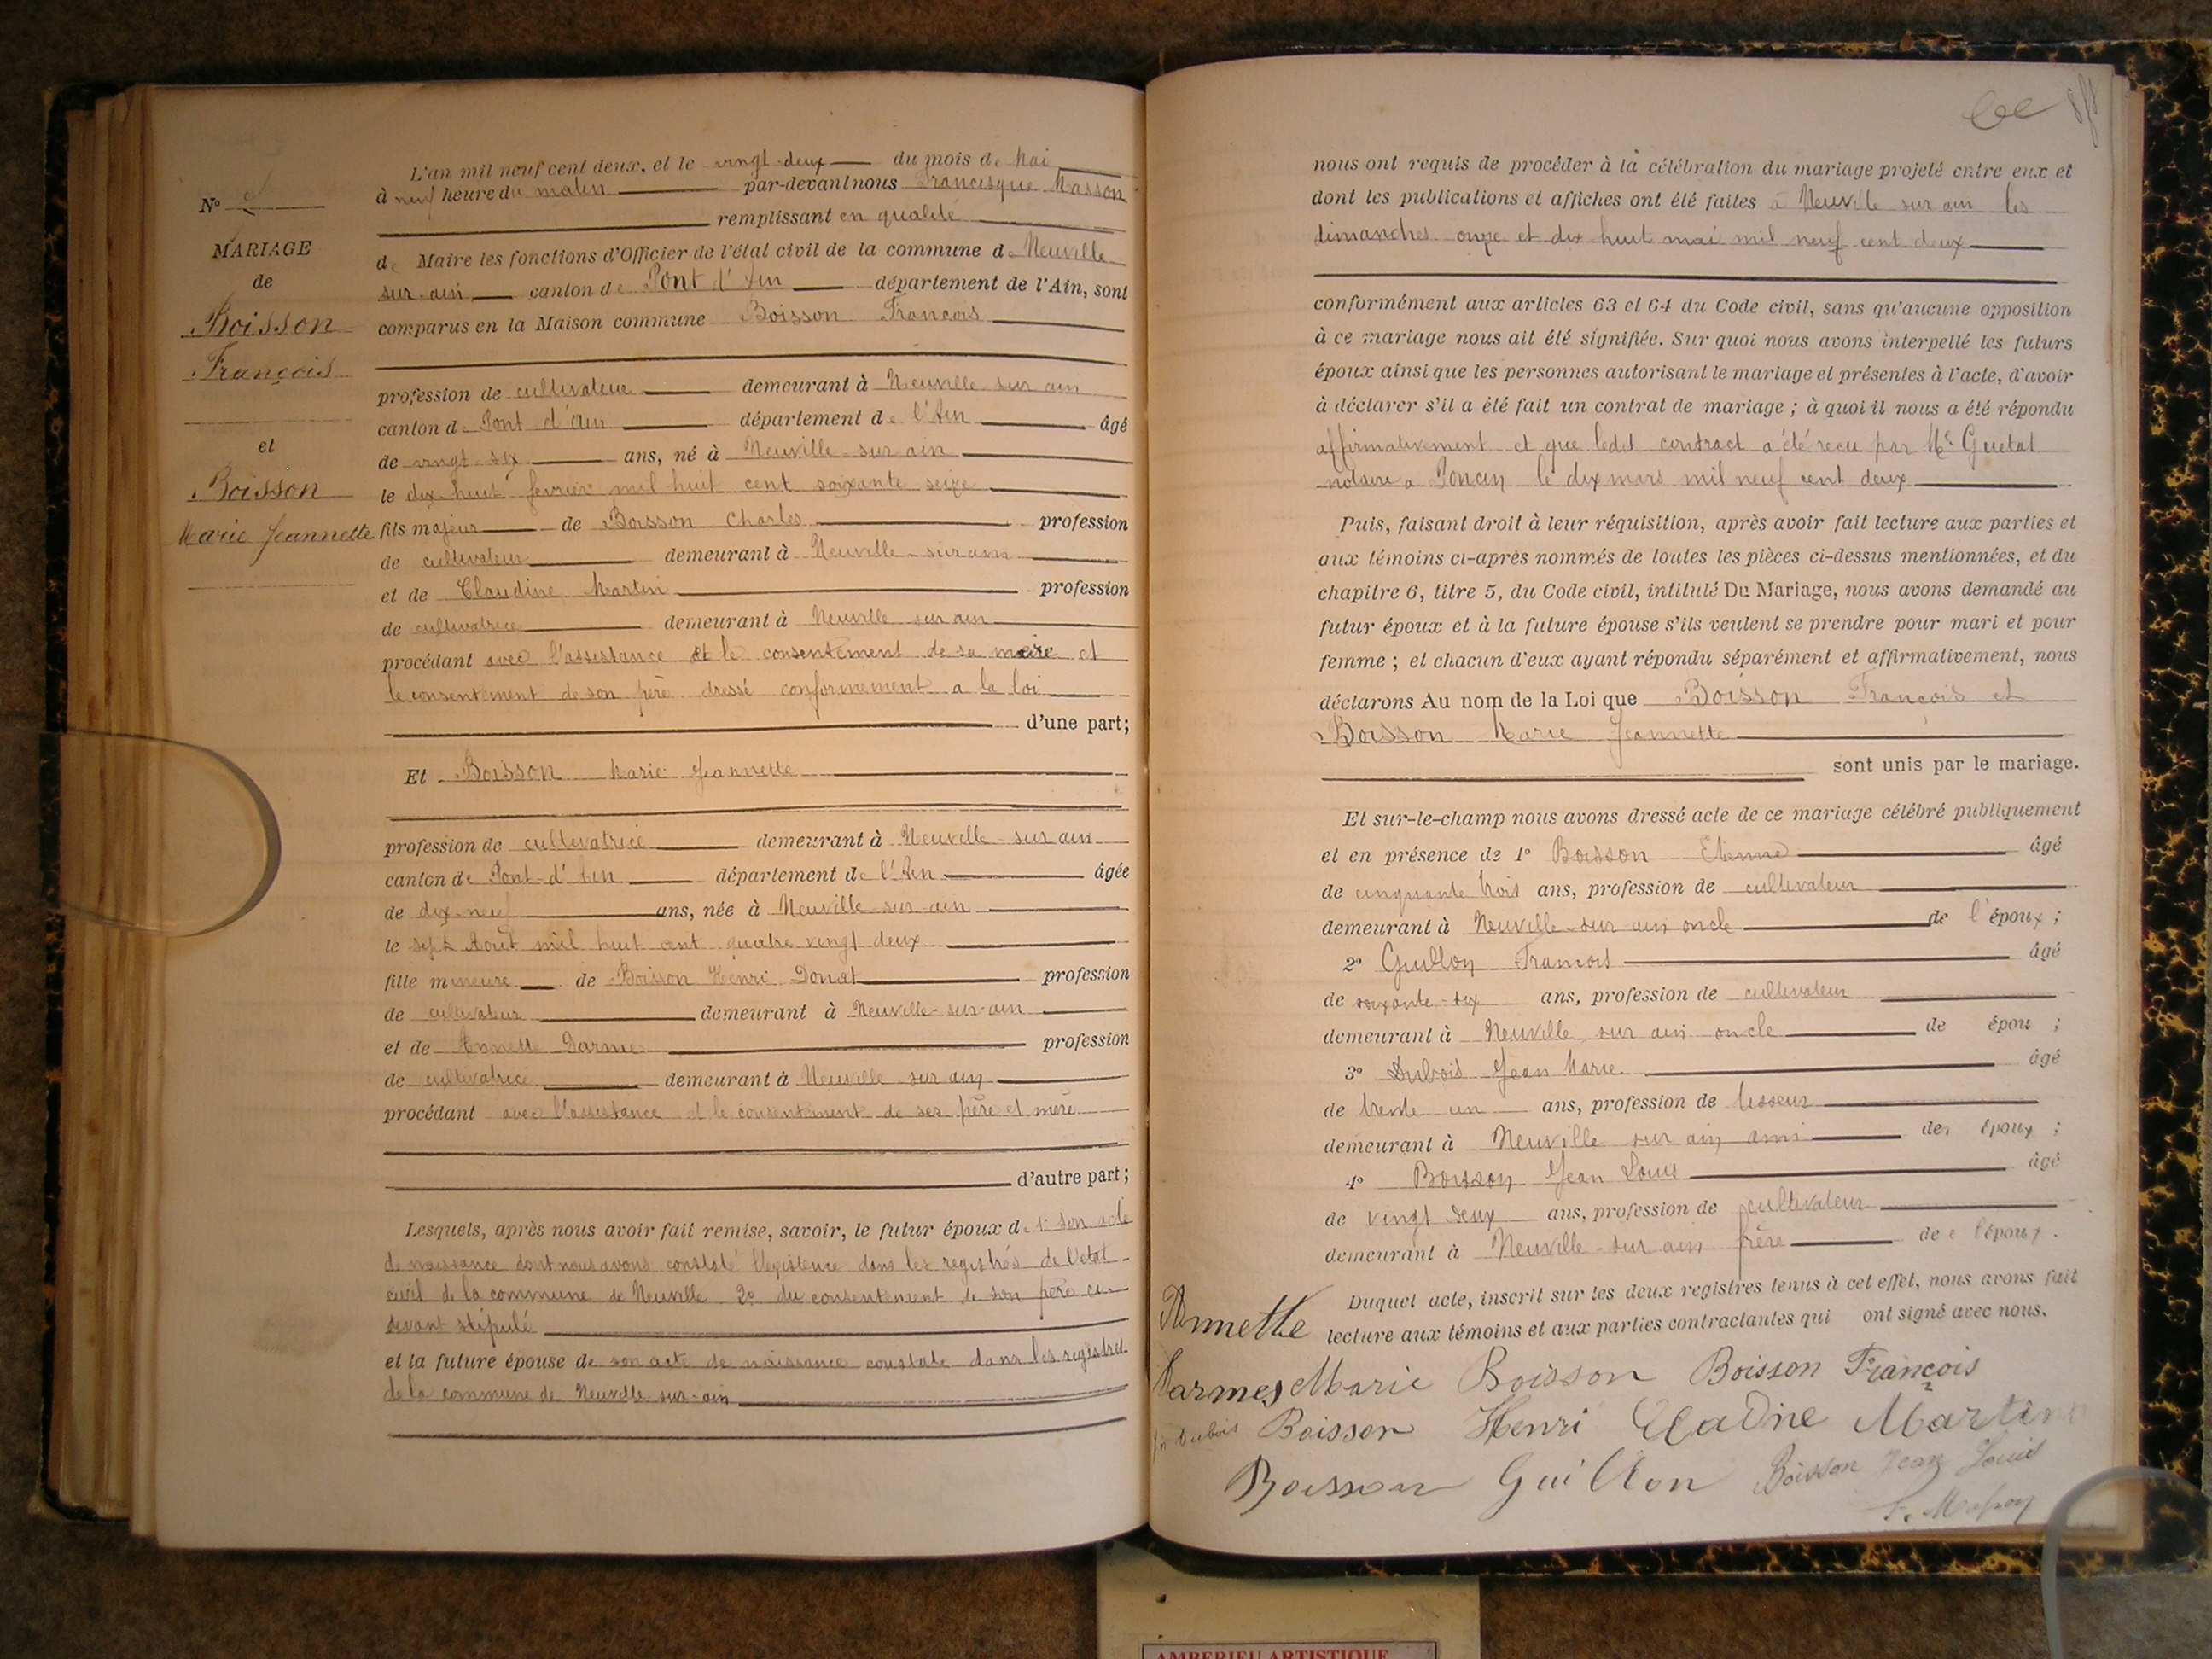 N°
MARIAGE
de
Boisson
François
et
Boisson
Marie Jeannette
L'an mil neuf cent deux, et le vingt-deux du mois de Mai
à neuf heure du matin par-devant nous Francisque Masson
remplissant en qualité
de Maire les fonctions d'Officier de l'état civil de la commune de Neuville
sur-ain canton de Pont d'Ain département de l'Ain, sont
comparus en la Maison commune Boisson Francois
profession de cultivateur demeurant à Neuville sur ain
canton de Pont d'ain département de l'Ain âgé
de vingt six ans, né à Neuville sur ain
le dix-huit fevrier mil huit cent soixante seize
fils majeur de Boisson Charles profession
de cultivateur demeurant à Neuville-sur ain
et de Claudine Martin profession
de cultivatrice demeurant à Neuville sur ain
procédant avec l'assistance et le consentement de sa mère et
le consentement de son père dressé conformement a la loi
d'une part;
Et Boisson Marie Jeannette
profession de cultivatrice demeurant à Neuville-sur ain
canton de Pont-d'Ain département de l'Ain âgée
de dix-neuf ans, née à Neuville-sur-ain
le sept Aout mil huit cent quatre vingt deux
fille mineure de Boisson Henri Donat profession
de cultivateur demeurant à Neuville-sur-ain
et de Annette Darmes profession
de cultivatrice demeurant à Neuville sur ain
procédant avec l'assistance et le consentement de ses père et mère
d'autre part;
Lesquels, après nous avoir fait remise, savoir, le futur époux de 1° son acte
de naissance dont nous avons constaté l'existence dans les registres de l'etat
civil de la commune de Neuville 2° du consentement de son père ci-
devant stipulé
et la future épouse de son acte de naissance constate dans les registres
de la commune de Neuville-sur-ain
nous ont requis de procéder à la célébration du mariage projeté entre eux et
dont les publications et affiches ont été faites à Neuville sur ain les
dimanches onze et dix huit mai mil neuf cent deux
conformément aux articles 63 et 64 du Code civil, sans qu'aucune opposition
à ce mariage nous ait été signifiée. Sur quoi nous avons interpellé les futurs
époux ainsi que les personnes autorisant le mariage et présentes à l'acte, d'avoir
à déclarer s'il a été fait un contrat de mariage; à quoi il nous a été répondu
affirmativement et que ledit contract a été recu par Me Guetat
notaire a Poncin le dix mars mil neuf cent deux
Puis, faisant droit à leur réquisition, après avoir fait lecture aux parties et
aux témoins ci-après nommés de toutes les pièces ci-dessus mentionnées, et du
chapitre 6, titre 5, du Code civil, intitulé Du Mariage, nous avons demandé au
futur époux et à la future épouse s'ils veulent se prendre pour mari et pour
femme; et chacun d'eux ayant répondu séparément et affirmativement, nous
déclarons Au nom de la Loi que Boisson François et
Boisson Marie Jeannette
sont unis par le mariage.
Et sur-le-champ nous avons dressé acte de ce mariage célébré publiquement
et en présence de 1° Boisson Etienne âgé
de cinquante trois ans, profession de cultivateur
demeurant à Neuville-sur-ain oncle de l'époux;
2° Guillon Francois âgé
de soixante-six ans, profession de cultivateur
demeurant à Neuville sur ain oncle de épou ;
3° Dubois Jean Marie âgé
de trente un ans, profession de tisseur
demeurant à Neuville sur ain ami des époux;
4° Boisson Jean Louis âgé
de vingt deux ans, profession de cultivateur
demeurant à Neuville-sur ain frère de l'époux.
Duquel acte, inscrit sur les deux registres tenus à cet effet, nous avons fait
lecture aux témoins et aux parties contractantes qui ont signé avec nous.
Annette
Darmes Marie Boisson Boisson François
Dubois Boisson Henri Cladine Martin
Boisson Guillon Boisson Jean Louis
F. Masson
AMBERIEU ARTISTIQUE